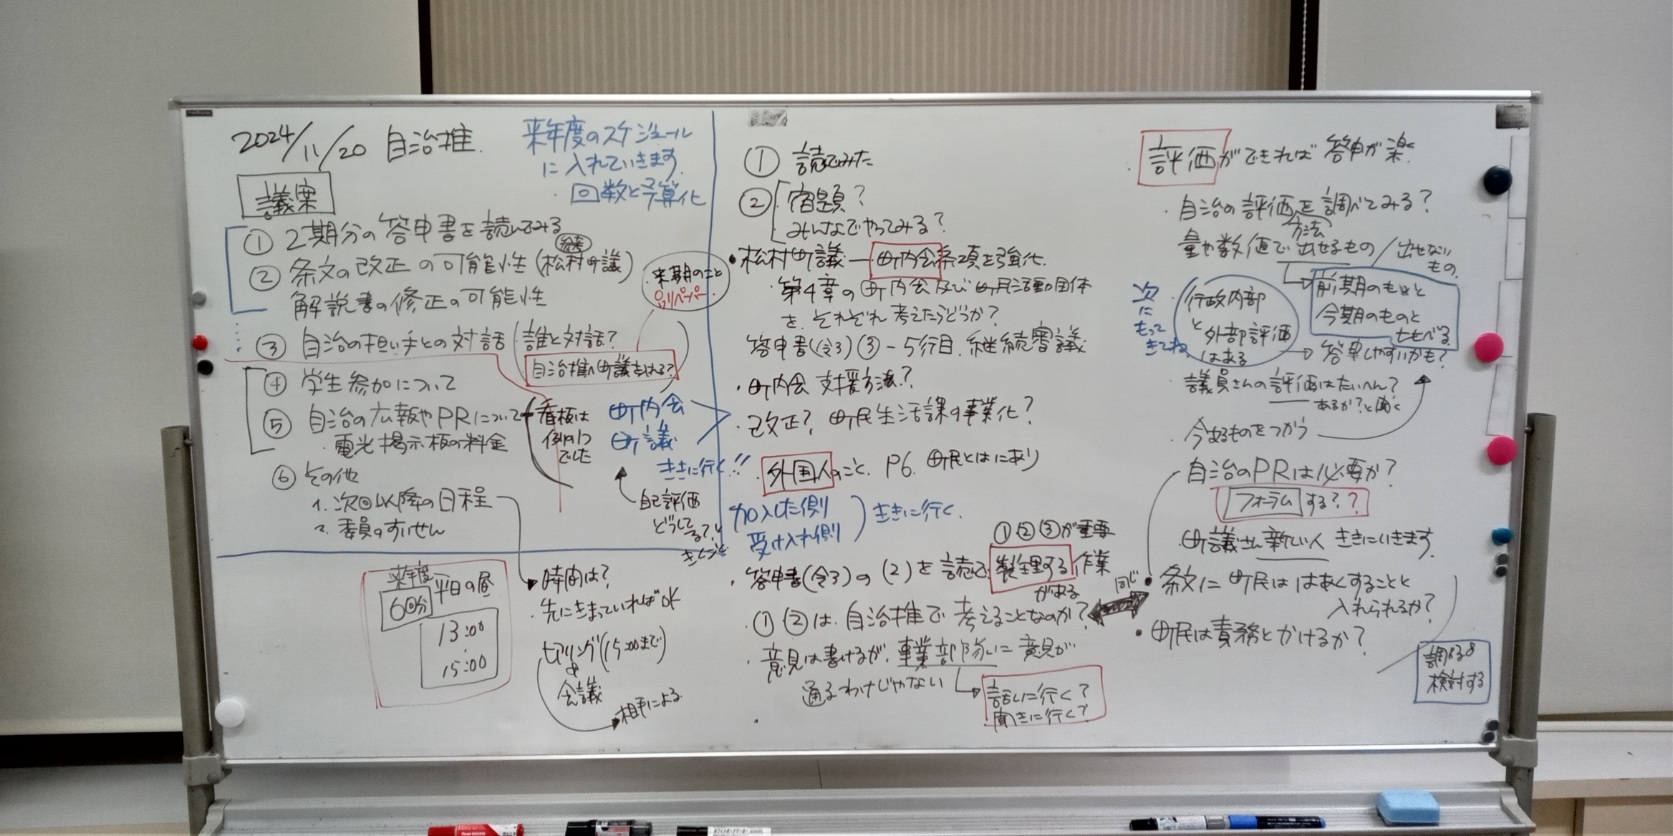 2024/11/20 自治推.
来年度のスケジュール
に入れていきます.
・回数と予算化
議案
① 2期分の答申書を読んでみる
② 条文の改正の可能性(松村町議)
解説書の修正の可能性
③ 自治の担い手との対話
誰と対話?
来期のこと
自治推へ町議もはいる?
④ 学生参加について
⑤ 自治の広報やPRについて
・電光掲示板の料金
看板は
例の1つ
でした
町内会
町議
ききに行く!!
自己評価
どうして
る?と
きくこと
⑥ その他
1. 次回以降の日程
2. 委員のすいせん
来年度
6回分
平日の昼
13:00
15:00
時間は?
・先にきまっていればOK
ヒアリング(15:00まで)
&
会議
相手による
① 読んでみた
② 宿題?
みんなでやってみる?
・松村町議ー町内会条項を強化.
・第4章の町内会及び町民活動団体
を、それぞれ考えたらどうか?
答申書(令3)③-5行目.継続審議
・町内会支援方法?
・改正? 町民生活課の事業化?
・外国人のこと. P6. 町民とはにあり
加入した側
受け入れ側
ききに行く.
①②③が重要
・答申書(令3)の(2)を読んで整理する作業
がある
・①②は自治推で考えることなのか?
同じ
・意見は書けるが、事業部隊に意見が
通るわけじゃない
話しに行く?
聞きに行く?
評価ができれば答申が楽.
・自治の評価を調べてみる?
方法
量や数値で出せるもの/出せない
もの.
次
に
もって
きてね
行政内部
と
外部評価
はある
前期のものと
今期のものと
くらべる
答申しやすいかも?
議員さんの評価はたいへん?
あるか?と聞く
・今あるものをつかう
・自治のPRは必要か?
フォーラムする??
町議さん新しい人ききにいきます.
・条文に町民ははあくすることと
入れられるか?
・町民は責務とかけるか?
調べる&
検討する